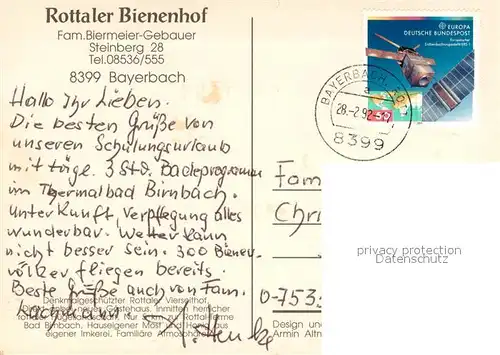 Rottaler Bienenhof
Fam.Biermeier-Gebauer
Steinberg 28
Tel.08536/555
8399 Bayerbach
Hallo Ihr Lieben.
Die besten Grüße von
unseren Schulungsurlaub
mit tägl. 3 Std. Badeprogramm
im Thermalbad Birnbach.
Unterkunft, Verpflegung alles
wunderbar. Wetter kann
nicht besser sein. 300 Bienen-
völker fliegen bereits.
Beste Grüße auch von Fam.
Denkmalgeschützter Rottaler Vierseithof.
neues Gästehaus. Inmitten herrlicher
Rottaler Hügellandschaft. Nur zu Rottal-Terme
Bad Birnbach. Hauseigener Most und Honig aus
eigener Imkerei. Familiäre Atmosphäre
EUROPA
DEUTSCHE BUNDESPOST
BAYERBACH
a
28.-2.92
8399
Fam
Chri
0-753
Design und
Armin Altm
privacy protection
Datenschutz